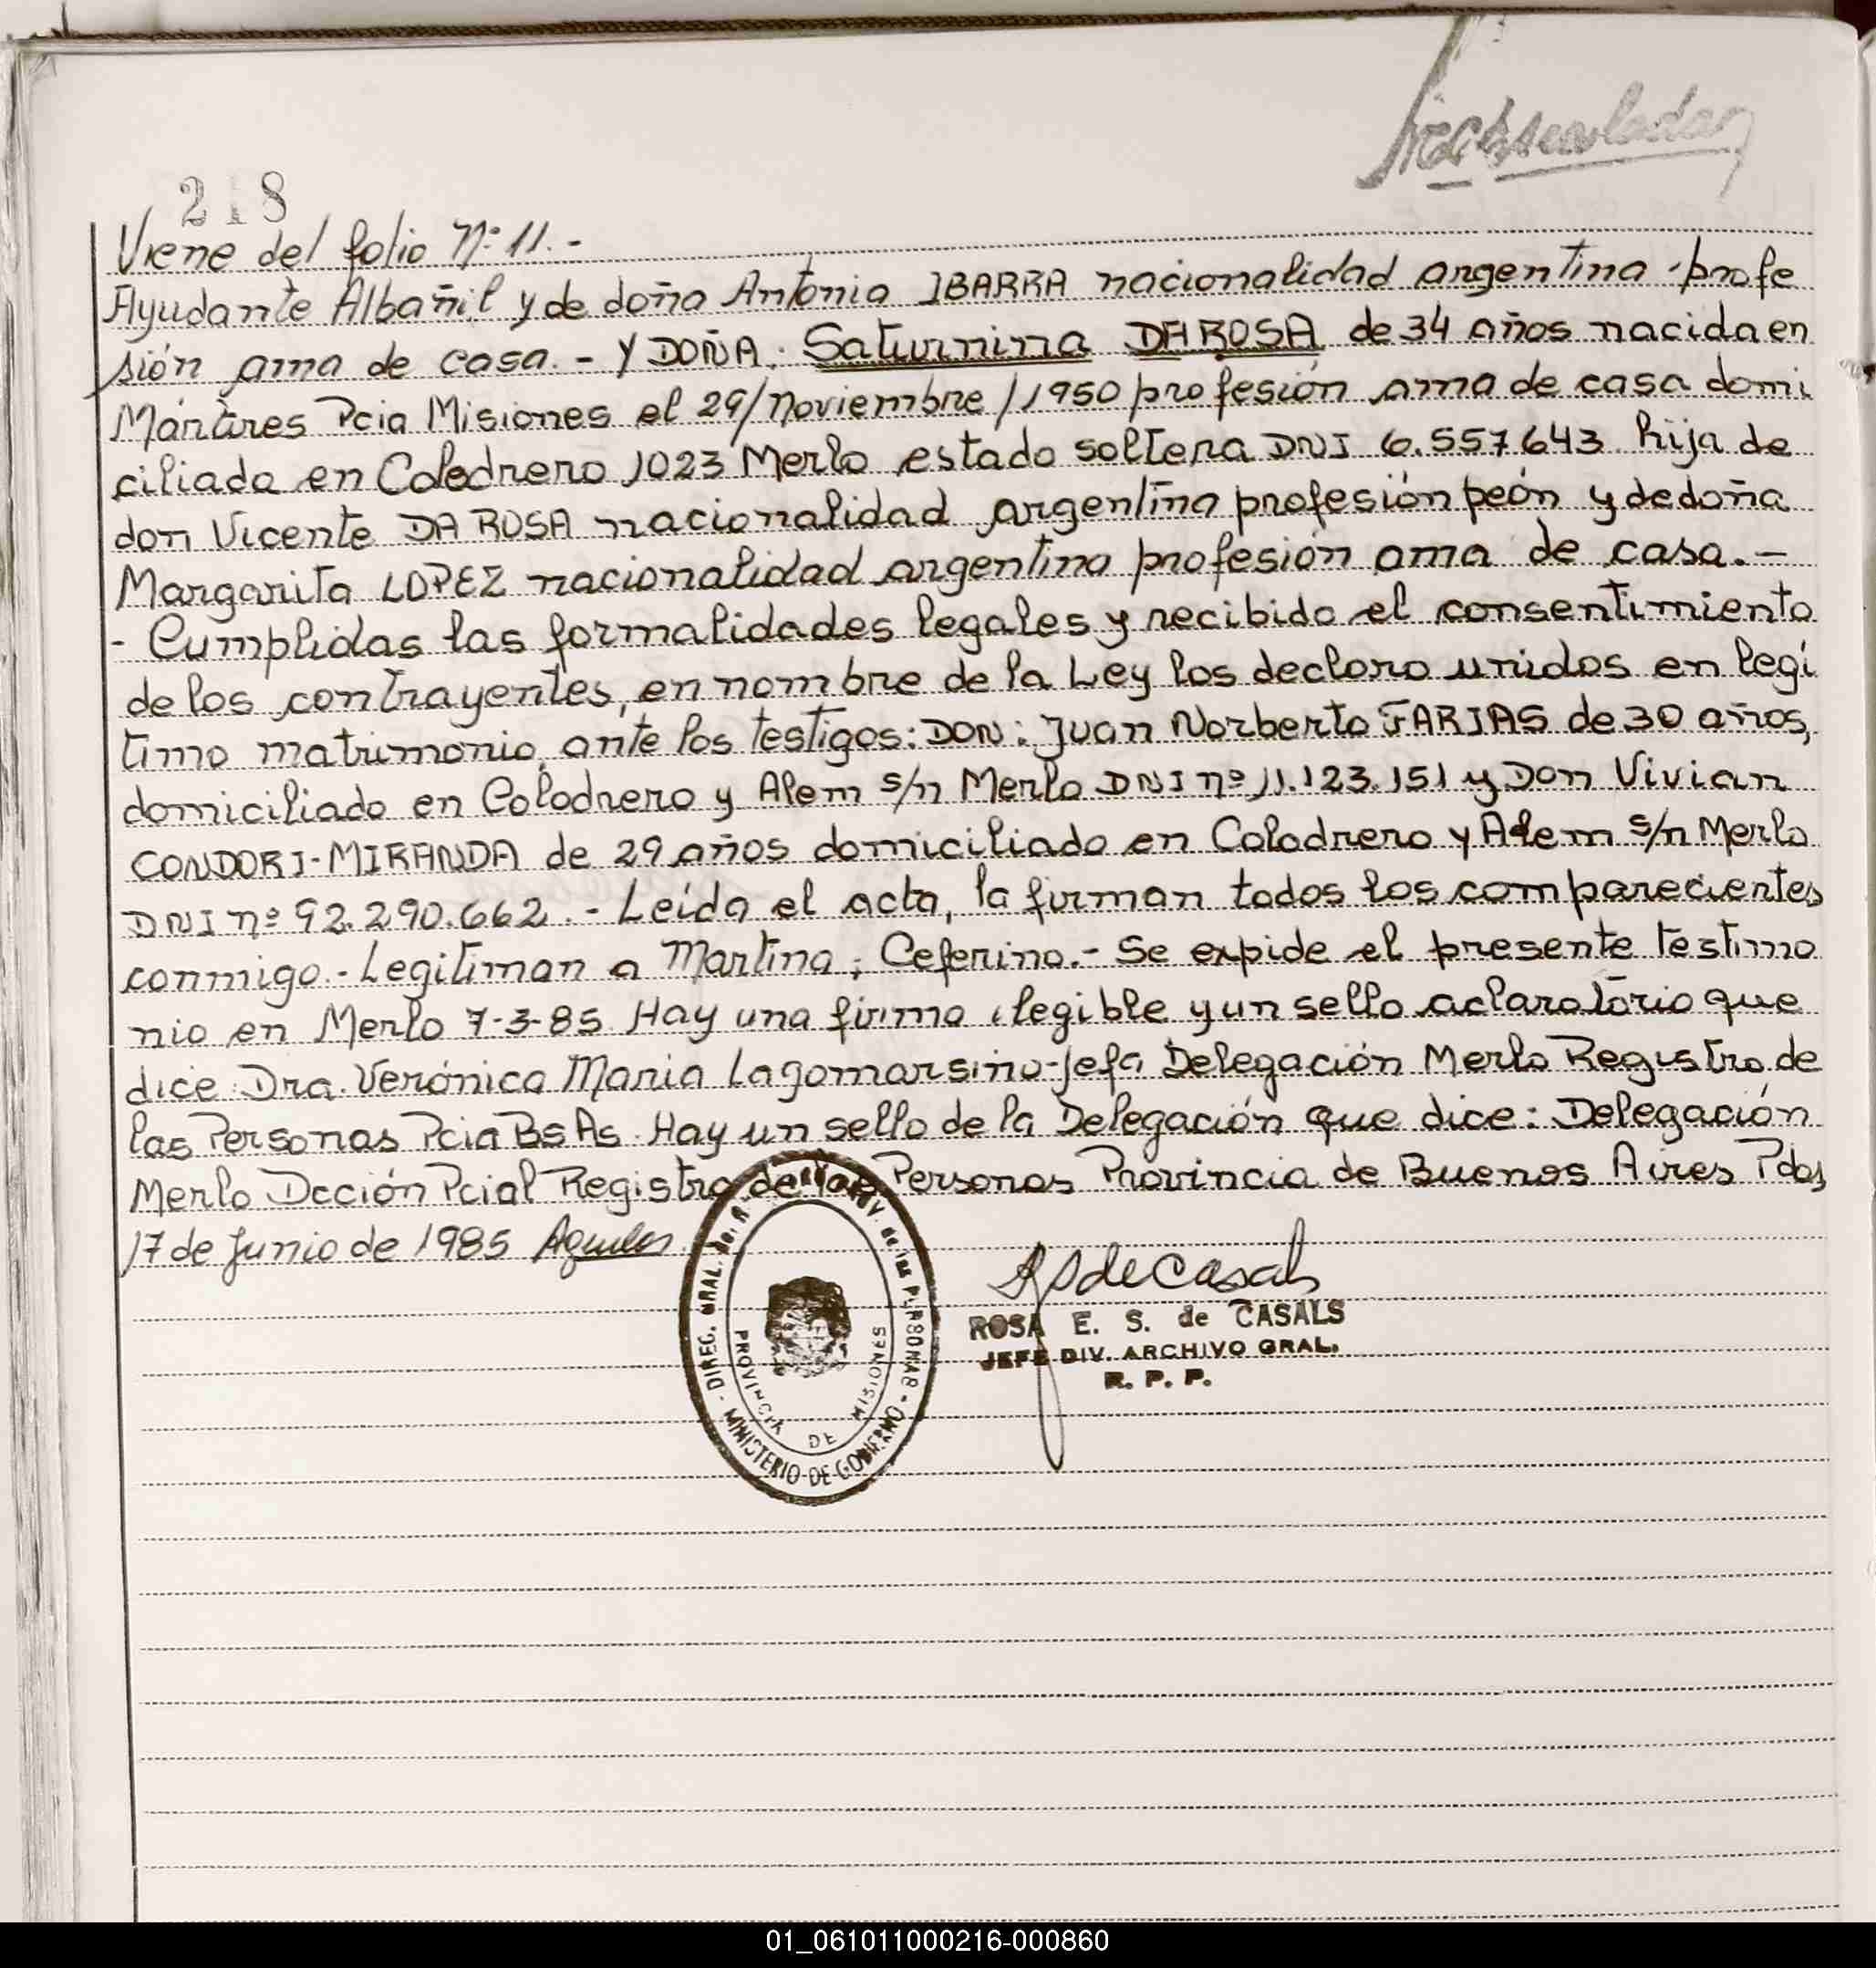 218
Viene del folio Nº 11.-
Ayudante Albañil y de doña Antonia IBARRA nacionalidad argentina profe
sión ama de casa.- Y DOÑA: Saturnina DA ROSA de 34 años nacida en
Mártires Pcia Misiones el 29/Noviembre/1950 profesión ama de casa domi
ciliada en Colodrero 1023 Merlo estado soltera DNI 6.557.643 hija de
don Vicente DA ROSA nacionalidad argentina profesión peón y de doña
Margarita LOPEZ nacionalidad argentina profesión ama de casa.-
- Cumplidas las formalidades legales y recibido el consentimiento
de los contrayentes, en nombre de la Ley los declaro unidos en legí
timo matrimonio, ante los testigos: DON: Juan Norberto FARIAS de 30 años,
domiciliado en Colodrero y Alem s/n Merlo DNI nº 11.123.151 y Don Vivian
CONDORI-MIRANDA de 29 años domiciliado en Colodrero y Alem s/n Merlo
DNI nº 92.290.662.- Leída el acta, la firman todos los comparecientes
conmigo.- Legitiman a Martina; Ceferino.- Se expide el presente testimo
nio en Merlo 7-3-85 Hay una firma ilegible y un sello aclaratorio que
dice: Dra. Verónica Maria Lagomarsino-Jefa Delegación Merlo Registro de
las Personas Pcia Bs As. Hay un sello de la Delegación que dice: Delegación
Merlo Dcción Pcial Registro de las Personas Provincia de Buenos Aires Pdas
17 de Junio de 1985
DIREC. GRAL. del R. PROV. de las PERSONAS - MINISTERIO DE GOBIERNO -
PROVINCIA DE MISIONES
ROSA E. S. de CASALS
JEFE DIV. ARCHIVO GRAL.
R. P. P.
01_061011000216-000860